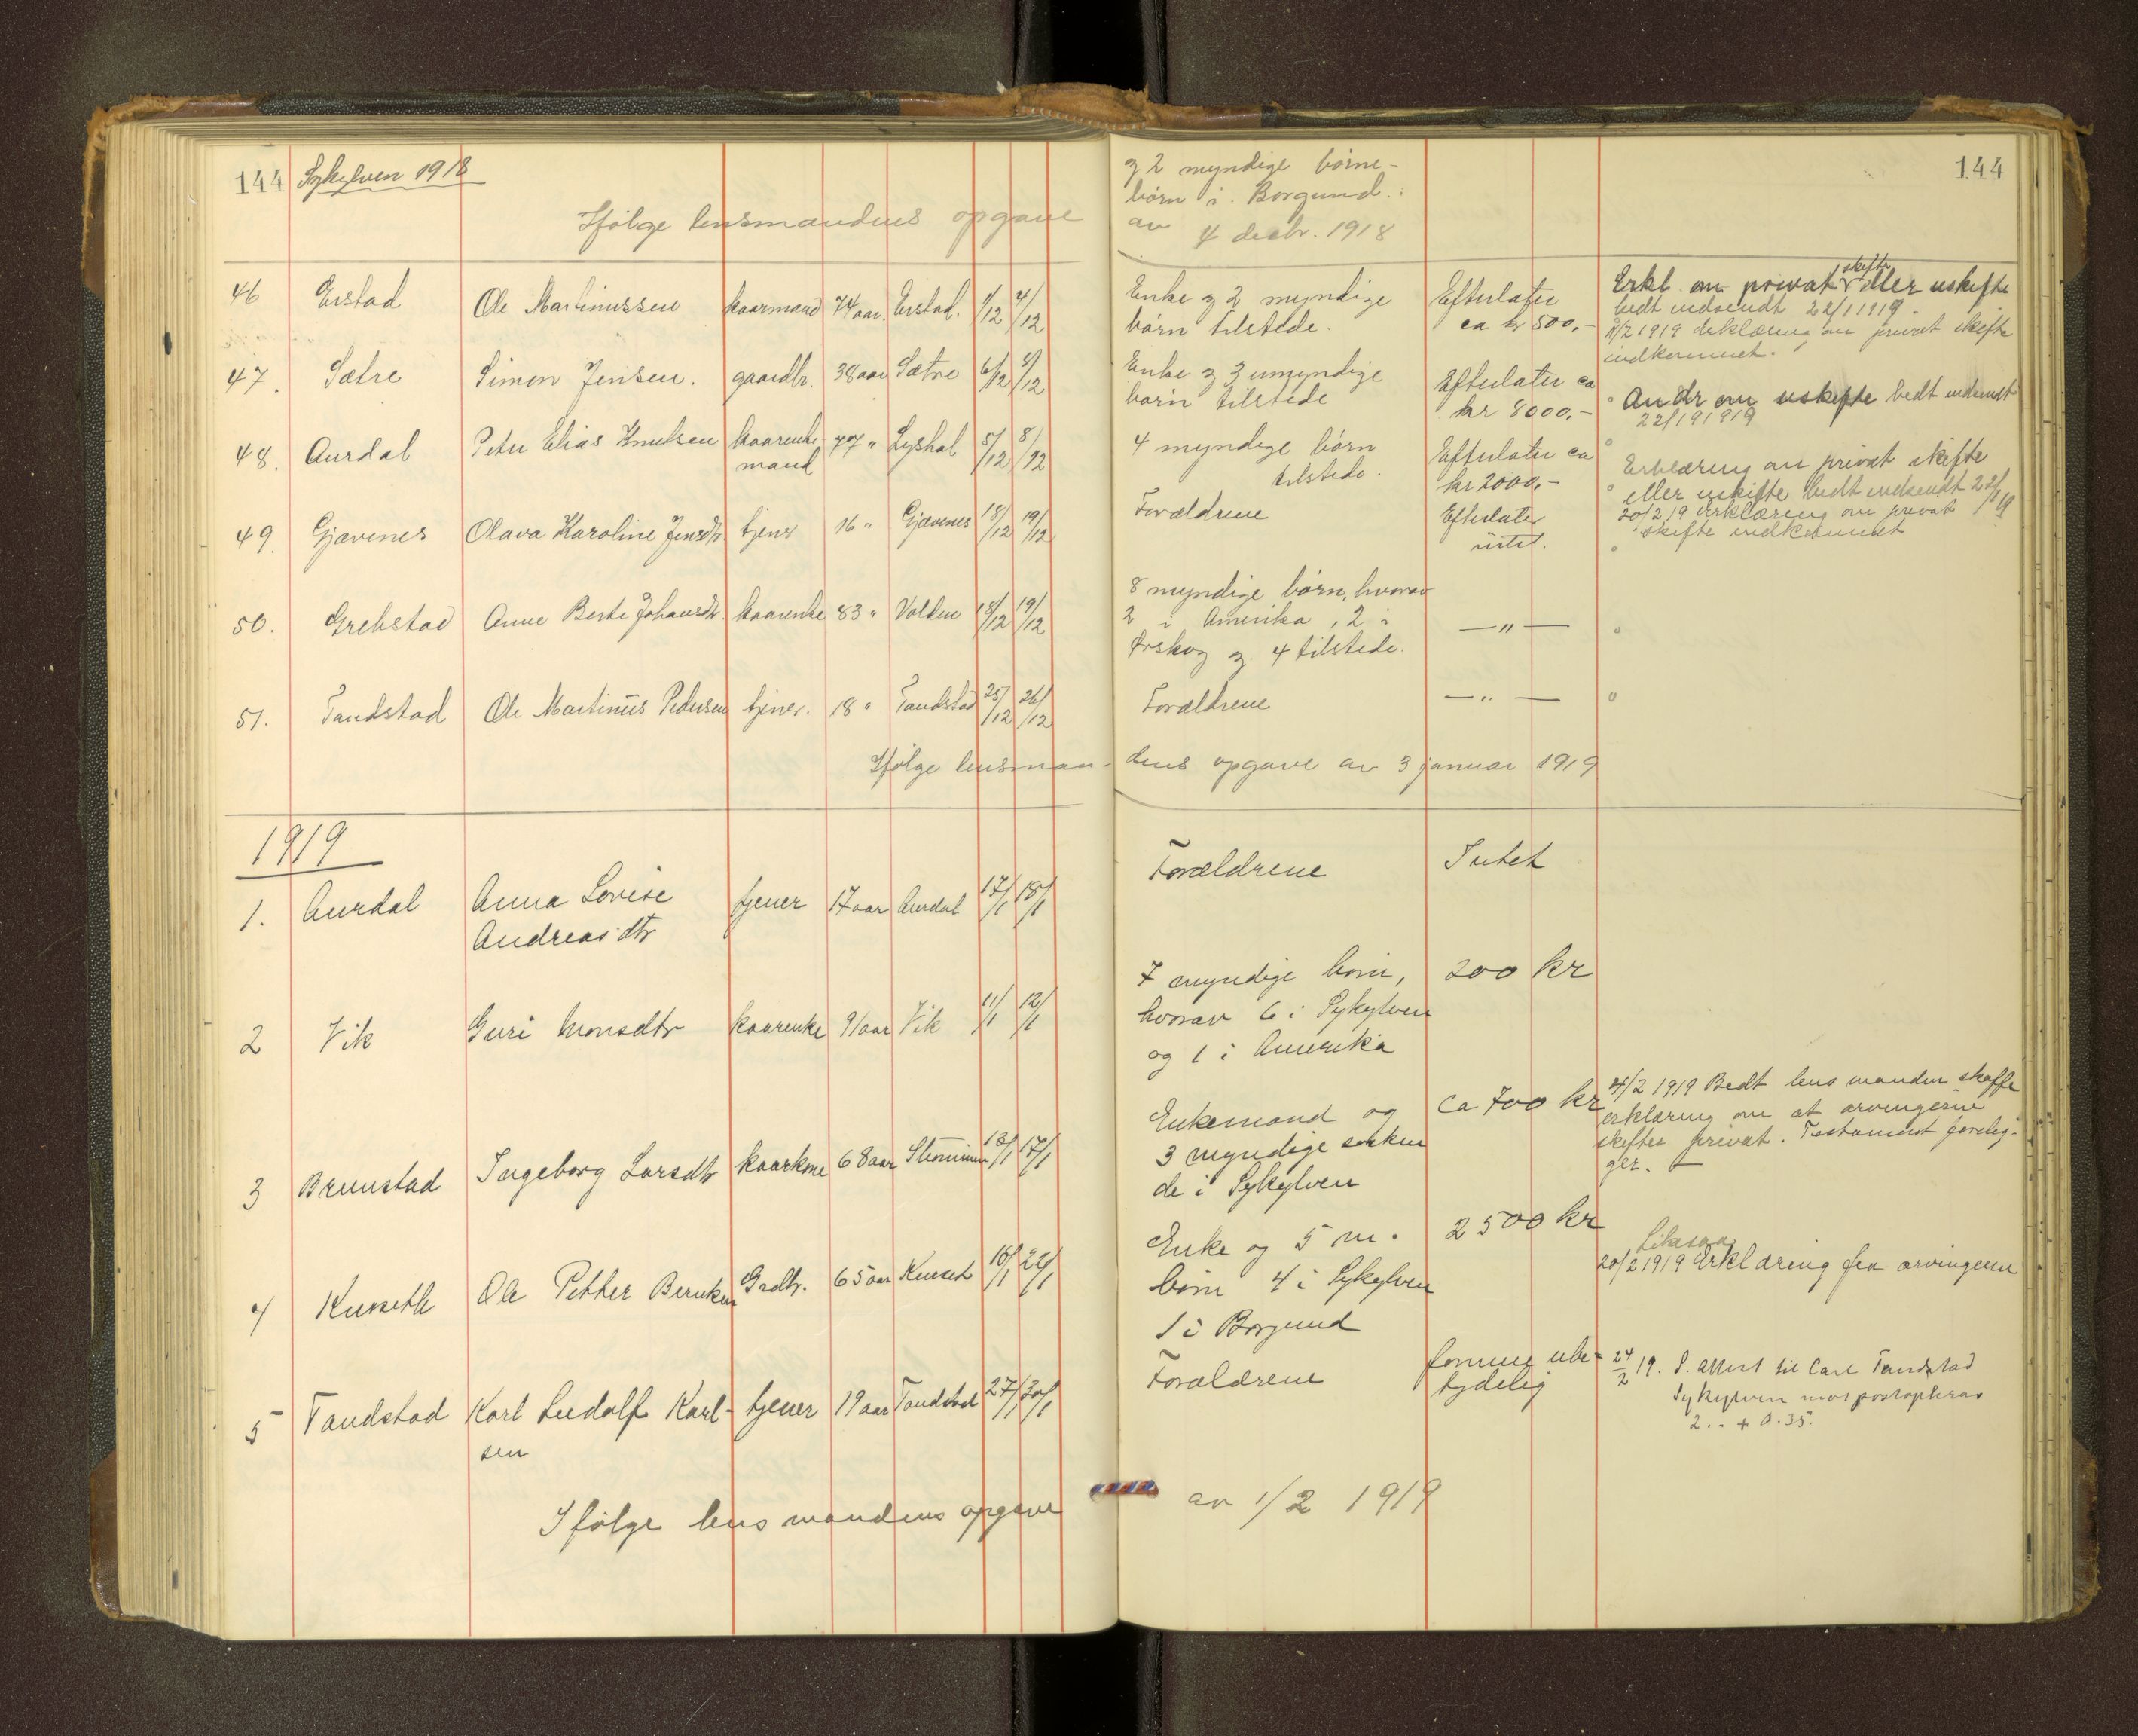 144 Sykylven 1918
Ifølge lensmandens opgave
46 Erstad Ole Martinussen kaarmand 74 aar. Erstad. 1/12 4/12
47. Sætre Simon Jensen. gaardbr. 38 aar Sætre 6/12 8/12
48. Aurdal Peter Elias Knutsen kaarenke- 77 " Lyshol 5/12 8/12
mand
49. Gjævenes Olava Karoline Jensdtr. tjener 16 " Gjævenes 18/12 19/12
50. Grebstad Anne Berte Johansdtr. kaarenke 83 " Valden 18/12 19/12
51. Tandstad Ole Martinus Pedersen tjener. 18 " Tandstad 25/12 26/12
Ifølge lensman-
1919
1. Aurdal Anna Lovise tjener 17 aar Aurdal 17/1 18/1
Andreasdtr
2 Vik Guri Monsdtr kaarenke 91 aar Vik 11/1 12/1
3 Brunstad Ingeborg Larsdtr kaarkone 68 aar Strømmen 13/1 17/1
4 Kurseth Ole Petter Berntsen Grdbr. 65 aar Kurset 18/1 22/1
5 Tandstad Karl Ludolf Karl- tjener 19 aar Tandstad 27/1 30/1
sen
Ifølge lensmandens opgave
144
og 2 myndige børne-
børn i Borgund.
av 4 decbr. 1918
Enke og 2 myndige Efterlater Erkl. om privat skifte eller uskifte
børn tilstede. ca kr 500,- bedt indsendt 22/1 1919.
8/2 1919 Erklæring om privat skifte
indkommet.
Enke og 3 umyndige Efterlater ca Andr om uskifte bedt indsendt
børn tilstede kr 8000,- 22/1 1919
4 myndige børn Efterlater ca Erklæring om privat skifte
tilstede. kr 2000,- eller uskifte bedt indsendt 22/1 19
20/2 19 Erklæring om privat
skifte indkommet
Forældrene Efterlater
intet.
8 myndige børn, hvorav
2 i Amerika, 2 i — " —
Ørskog og 4 tilstede.
Forældrene — " —
dens opgave av 3 januar 1919
Forældrene Intet
7 myndige børn, 200 kr
hvorav 6 i Sykylven
og 1 i Amerika
Enkemand og ca 700 kr 4/2 1919 Bedt lensmanden skaffe
3 myndige søsken erklæring om at arvingerne
de i Sykylven skifter privat. Testament forelig-
ger.
Enke og 5 m. 2500 kr
børn 4 i Sykylven 20/2 1919 Erklæring fra arvingerne
1 i Borgund
Forældrene formue ube- 24/2 19. S. attest til Carl Tandstad
tydelig Sykylven mot postopkrav
2.- + 0.35.
av 1/2 1919